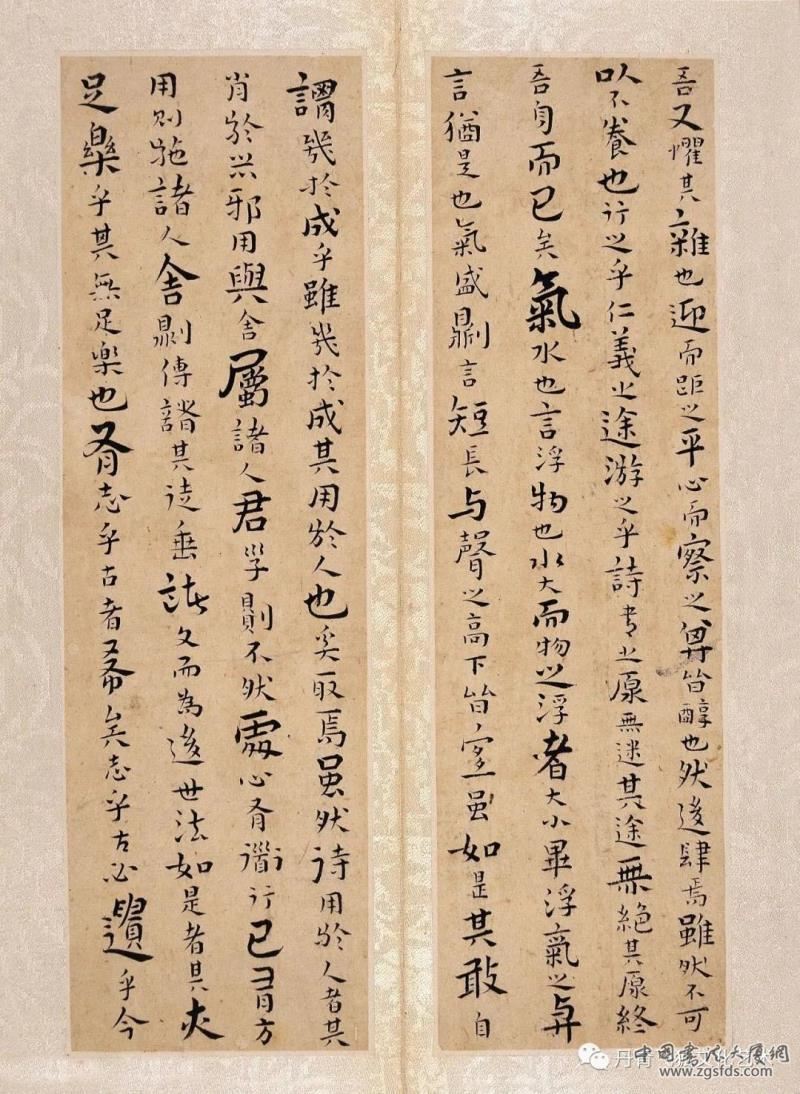 吾又懼其雜也迎而距之平心而察之其皆醇也然後肆焉雖然不可
以不養也行之乎仁義之途游之乎詩書之原無迷其途無絕其原終
吾身而已矣氣水也言浮物也水大而物之浮者大小畢浮氣之與
言猶是也氣盛則言短長与聲之高下皆宜虽如是其敢自
謂幾於成乎雖幾於成其用於人也奚取焉虽然待用於人者其
肖於器邪用與舍屬諸人君子則不然處心有道行己有方
用則施諸人舍則傳諸其徒垂諸文而為後世法如是者其亦
足樂乎其無足楽也有志乎古者希矣志乎古必遺乎今
中国书法大厦網
www.zgsfds.com